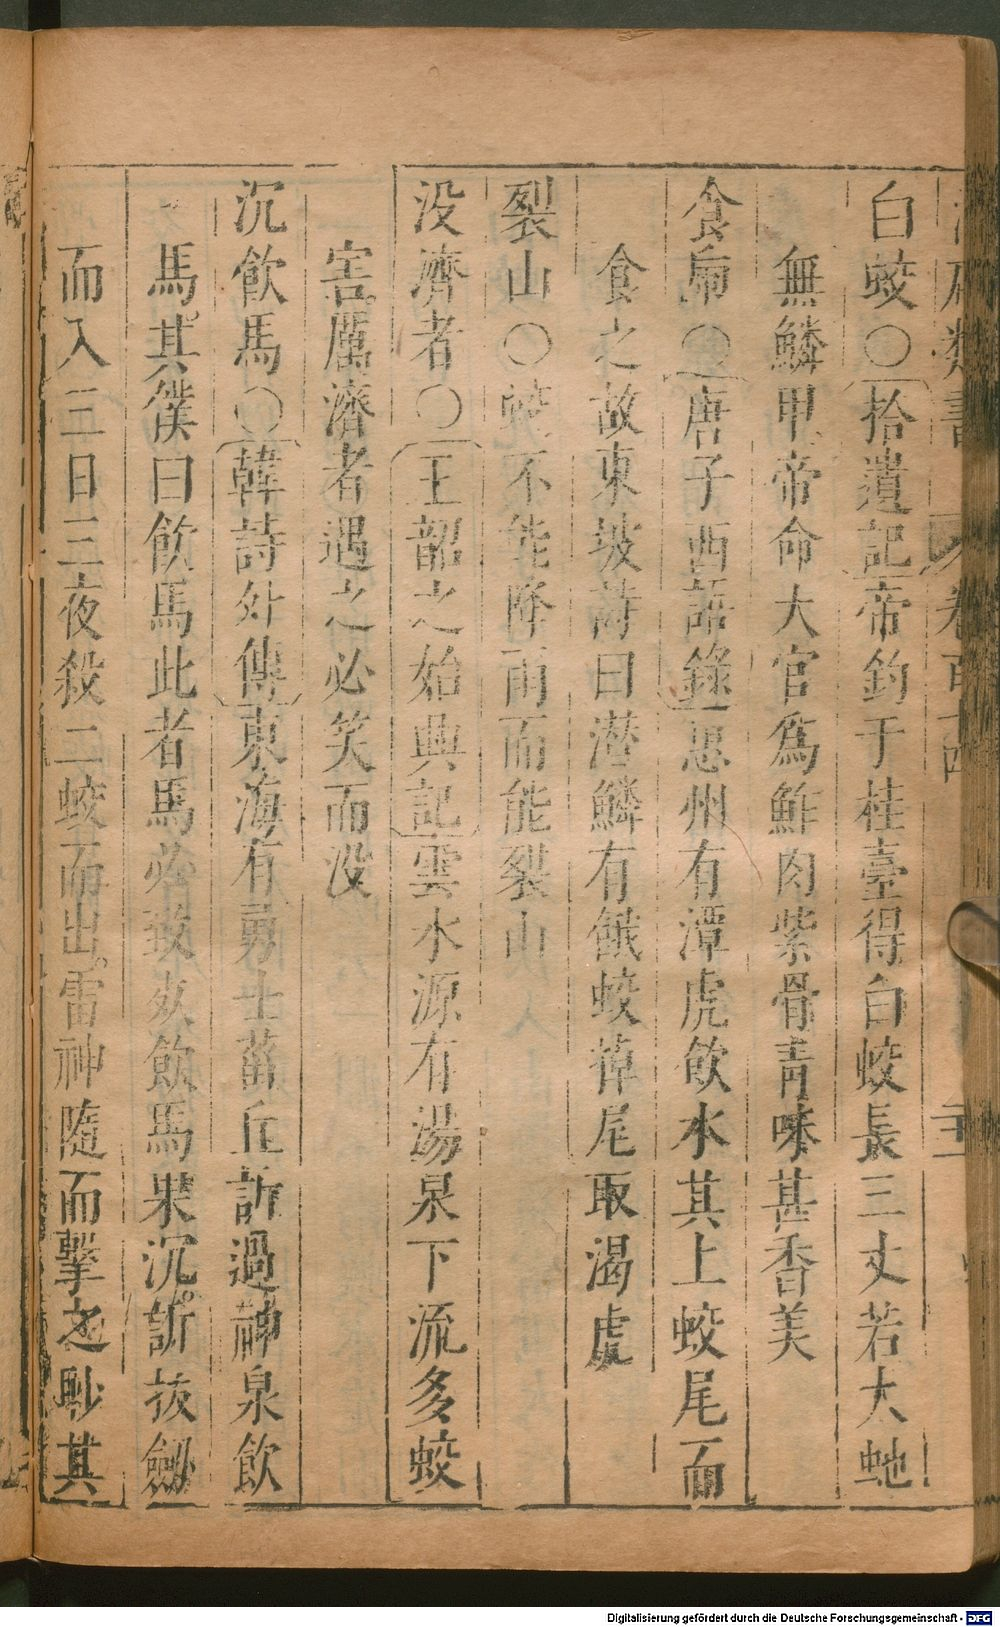 白蛟○拾遺記帝釣于桂臺得白蛟長三丈若大虵
無鱗甲帝命大官爲鮓肉紫骨靑味甚香美
食虎○唐子西語錄惠州有潭虎飮水其上蛟尾而
食之故東坡詩曰潛鱗有餓蛟掉尾取渴虎
裂山○蛟不能降雨而能裂山
没濟者○王韶之始興記雲水源有湯泉下流多蛟
害厲濟者遇之必笑而没
沉飮馬○韓詩外傳東海有勇士菑丘訢過神泉飮
馬其僕曰飮馬此者馬必致死飮馬果沉訢拔劒
而入三日三夜殺二蛟而出雷神隨而擊之眇其
Digitalisierung gefördert durch die Deutsche Forschungsgemeinschaft - DFG